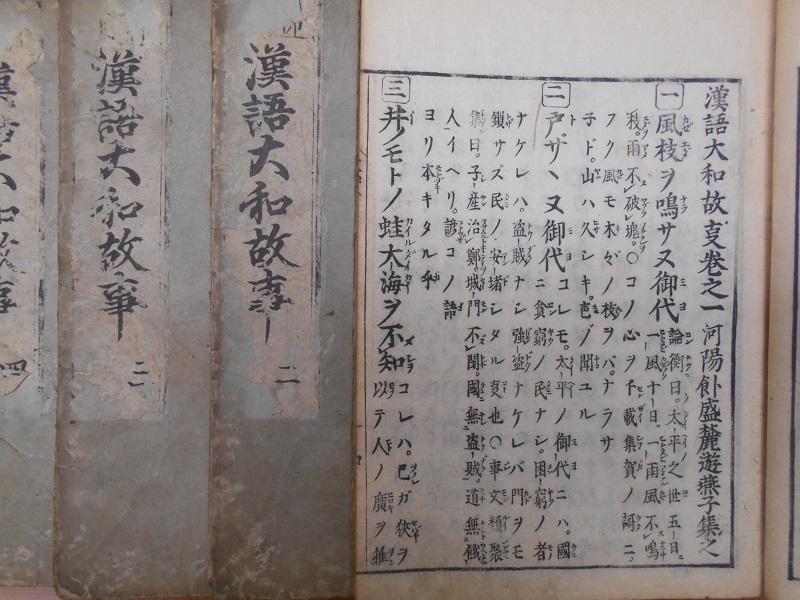 漢語大和故叓巻之一 河陽飰盛麓遊燕子集之
一 風枝ヲ鳴サヌ御代 論衡曰。太平之世五日
一風十日一雨風不鳴
枝。雨不破塊。〇コノ心ヲ千載集賀ノ謌ニ。
フク風モ木々ノ枝ヲバ。ナラサ
子ド。山ハ久シキ。声ゾ聞ユル
二 戸サヽヌ御代 コレモ。太平ノ御代ニハ。國
ニ貧窮ノ民ナシ。困窮ノ者
ナケレハ。盗賊ナシ強盗ナケレバ門ヲモ
鎖サズ民ノ安堵シタル叓也〇事文類聚
集ニ曰。子産治鄭。城門不閉。國無盗賊。道無餓
人イヘリ。諺コノ語
ヨリ本キタル乎
三 井ノモトノ蛙大海ヲ不知 コレハ。已ガ狹ヲ
以テ人ノ廣ヲ推
漢語大和故事 二
漢語大和故事 三
漢語大和故事 四